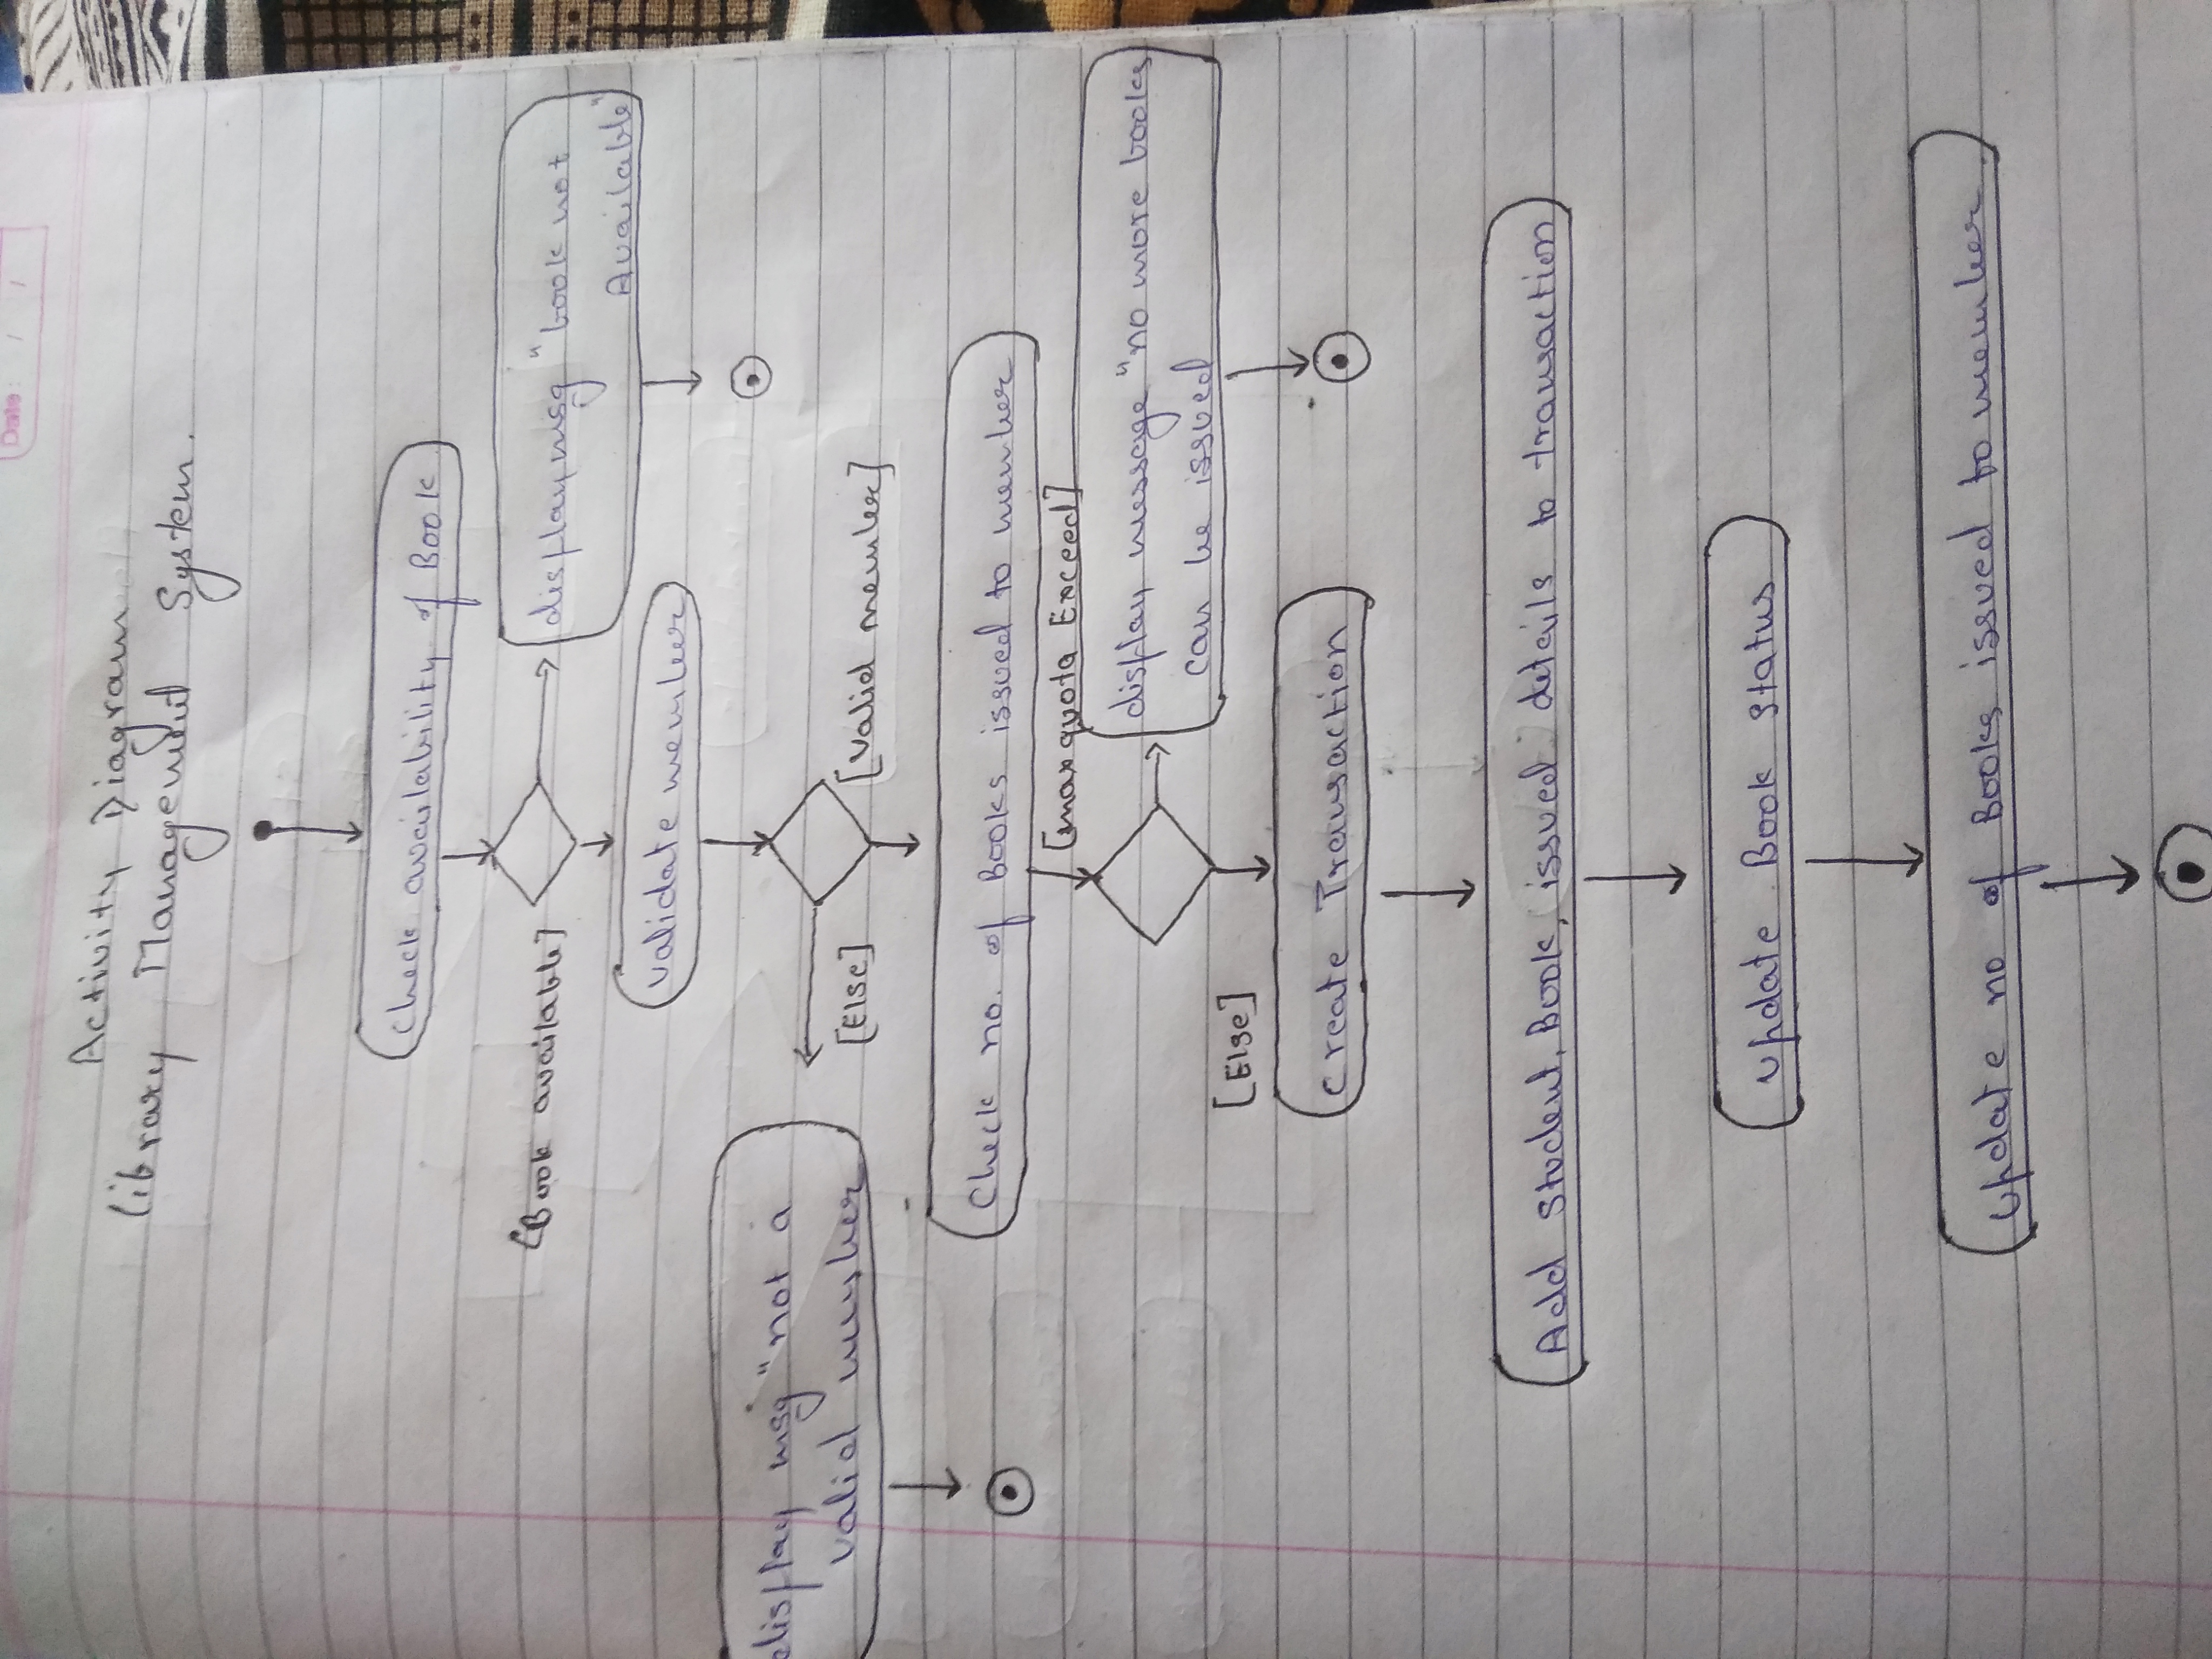 Date: / /
Activity Diagram
library Management System.
Check availability of Book
[Book available]
display msg "book not
Available"
validate member
display msg "not a
valid member
[Else]
[valid member]
Check no. of Books issued to member
[max quota Exceed]
display message "no more books
can be issued
[Else]
create Transaction
Add Student, Book, issued details to transaction
update Book Status
update no of Books issued to member.